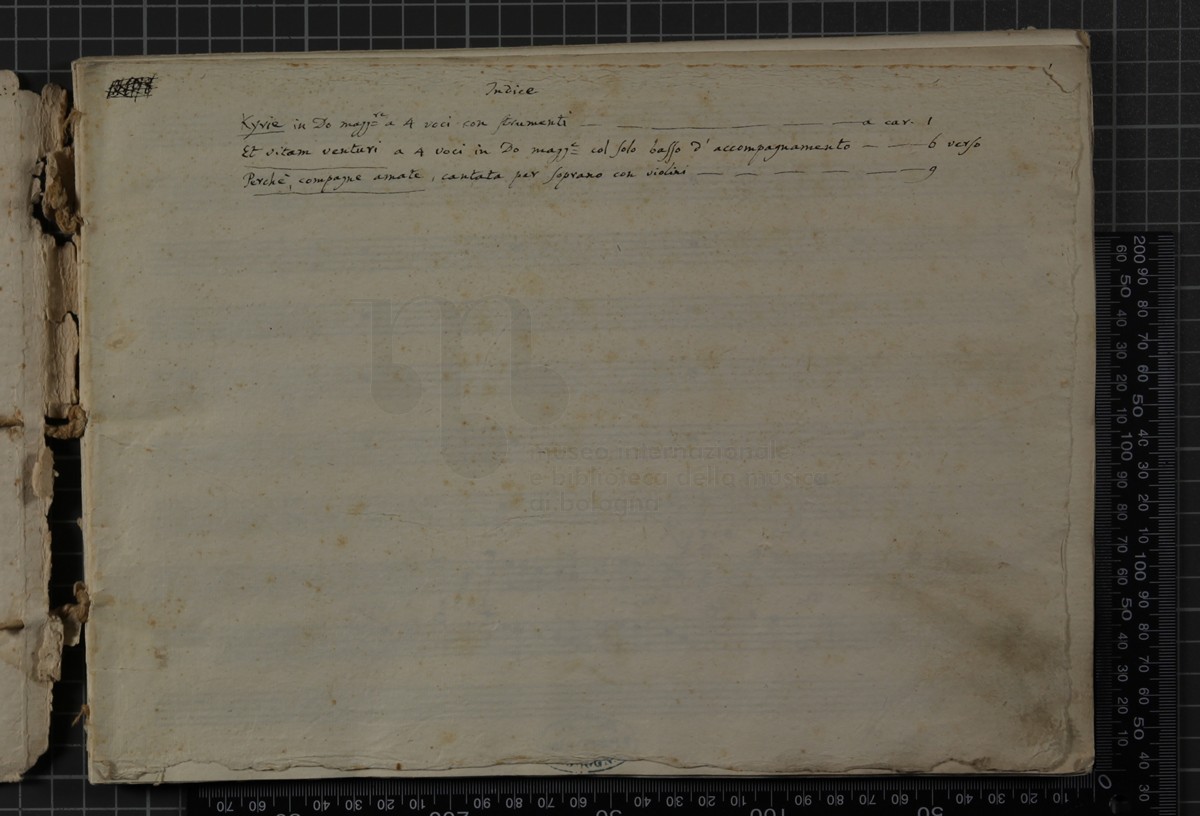 Indice
Kyrie in Do magg.re a 4 voci con strumenti — a car. 1
Et vitam venturi a 4 voci in Do magg.e col solo basso d'accompagnamento — — 6 verso
Perchè, compagne amate, cantata per soprano con violini — — — — — 9
museo internazionale
e biblioteca della musica
di bologna